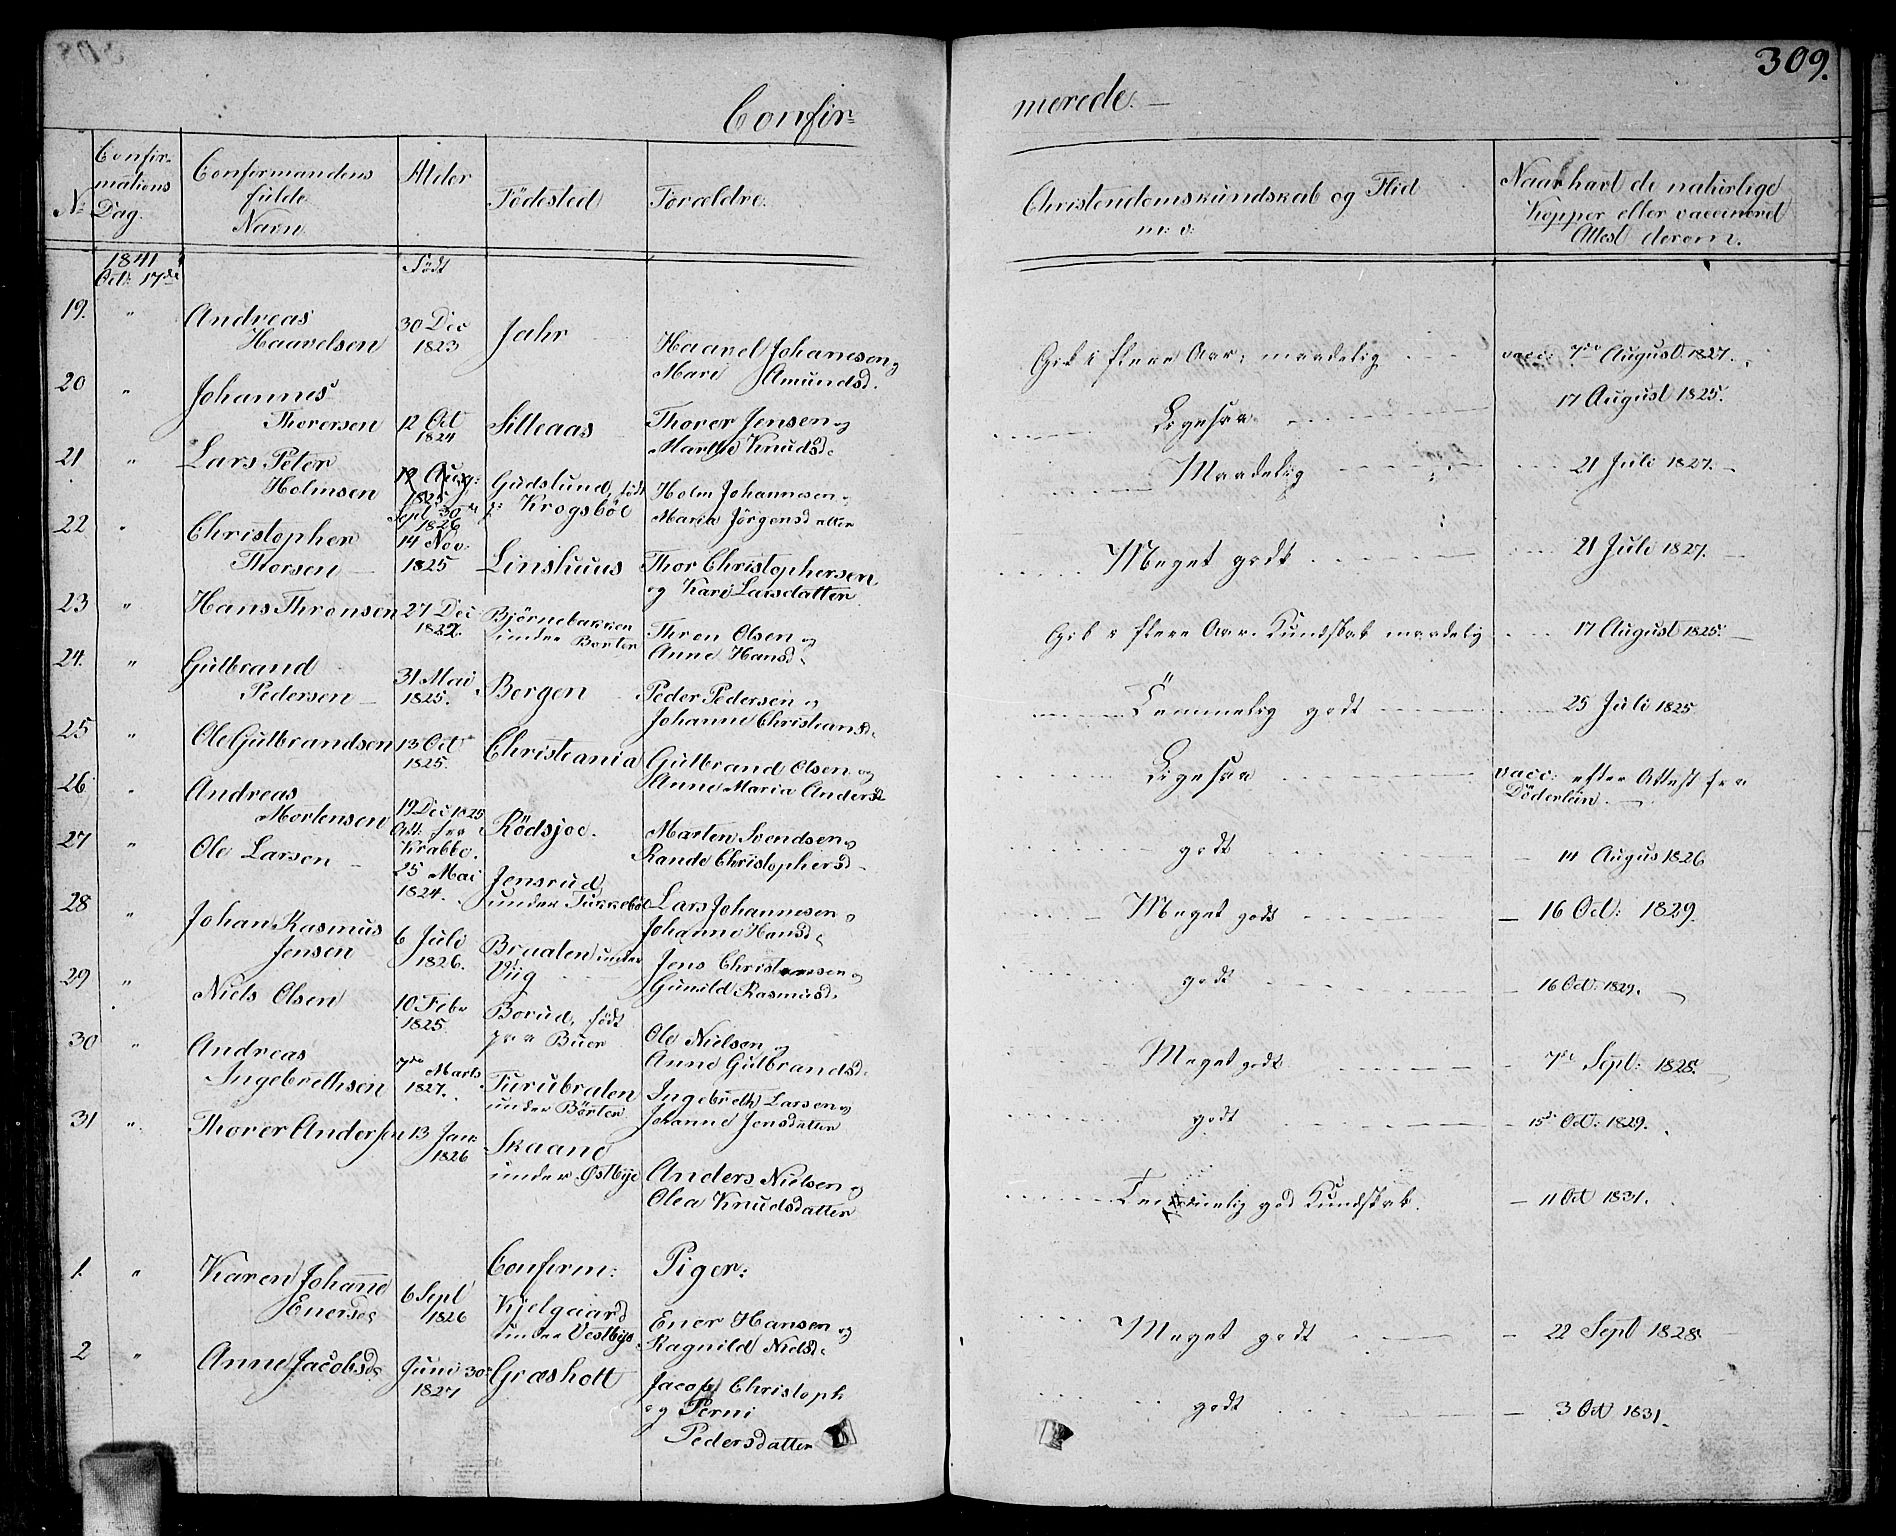 309.
Confir=
merede. —
No
Confir-
mations
Dag.
Confirmandens
fulde
Navn
Alder
Födested
Forældre
Christendomskundskab og Flid
m: v:
Naar havt de naturlige
Kopper eller vaccinered
Attest derom.
1841
Oct: 17de
Födt
19. " Andreas
Haavelsen
30 Dec
1823
Jahr
Haavel Johannesen og
Mari Amundsd.
Gik i flere Aar; maadelig
vacc: 7de August 1827.
20 " Johannes
Thorersen
12 Oct
1824
Silleaas
Thorer Jensen og
Marthe Knudsd.
Ligesaa
17 August 1825.
21 " Lars Peter
Holmsen
12 Aug:
1825
Sept 30te
1826
Gudslund, födt
p: Krogsböl
Holm Johannesen og
Maria Jörgensdatter
Maadelig
21 Juli 1827.
22 " Christopher
Thorsen
14 Nov.
1825
Linshuus
Thor Christophersen
og Kari Larsdatter
Meget godt
21 Juli 1827.
23 " Hans Thronsen
27 Dec
1822.
Björnebakken
under Borter
Thron Olsen og
Anne Hansd.
Gik i flere Aar. Kundskab maadelig
17 August 1825.
24. " Gulbrand
Pedersen
31 Mai
1825.
Bergen
Peder Pedersen og
Johanne Christiansd.
Temmelig godt
25 Juli 1825
25 " Ole Gulbrandsen
13 Oct
1825.
Christiania
Gulbrand Olsen og
Anne Maria Andersd
Ligesaa
vacc: efter Attest fra
Döderlein.
26 " Andreas
Mortensen
19 Dec 1825
Att: fra
Krabbe.
Rödsjoe.
Morten Svendsen og
Rande Christophersd.
godt
14 Augus 1826
27 " Ole Larsen
25 Mai
1824.
Jensrud
under Tukkeböl
Lars Johannesen og
Johanne Hansd.
Meget godt
16 Oct: 1829.
28 " Johan Rasmus
Jensen
6 Juli
1826.
Braaten under
Viig
Jens Christensen og
Gunild Rasmusd.
godt
16 Oct: 1829.
29 " Niels Olsen
10 Febr
1825.
Borud, födt
paa Buer
Ole Nielsen og
Anne Gulbrandsd.
Meget godt
7de Sept: 1828.
30 " Andreas
Ingebrethsen
7de Marts
1827.
Turubraten
under Börter
Ingebreth Larsen og
Johanne Jensdatter
godt
15de Oct: 1829.
31 " Thorer Andersen
13 Jan
1826
Skaane
under Østbye
Anders Nielsen og
Olea Knudsdatter
Temmelig god Kundskab.
11 Oct 1831.
Confirm: Piger:
1. " Karen Johanne
Enersd.
6 Sept
1826
Kjelgaard
under Vestbye
Ener Hansen og
Ragnild Nielsd.
Meget godt
22 Sept 1828
2 " Anne Jacobsd.
Juni 30
1827
Græsholt
Jacob Christoph
og Perni
Pedersdatter
godt
3 Oct 1831.